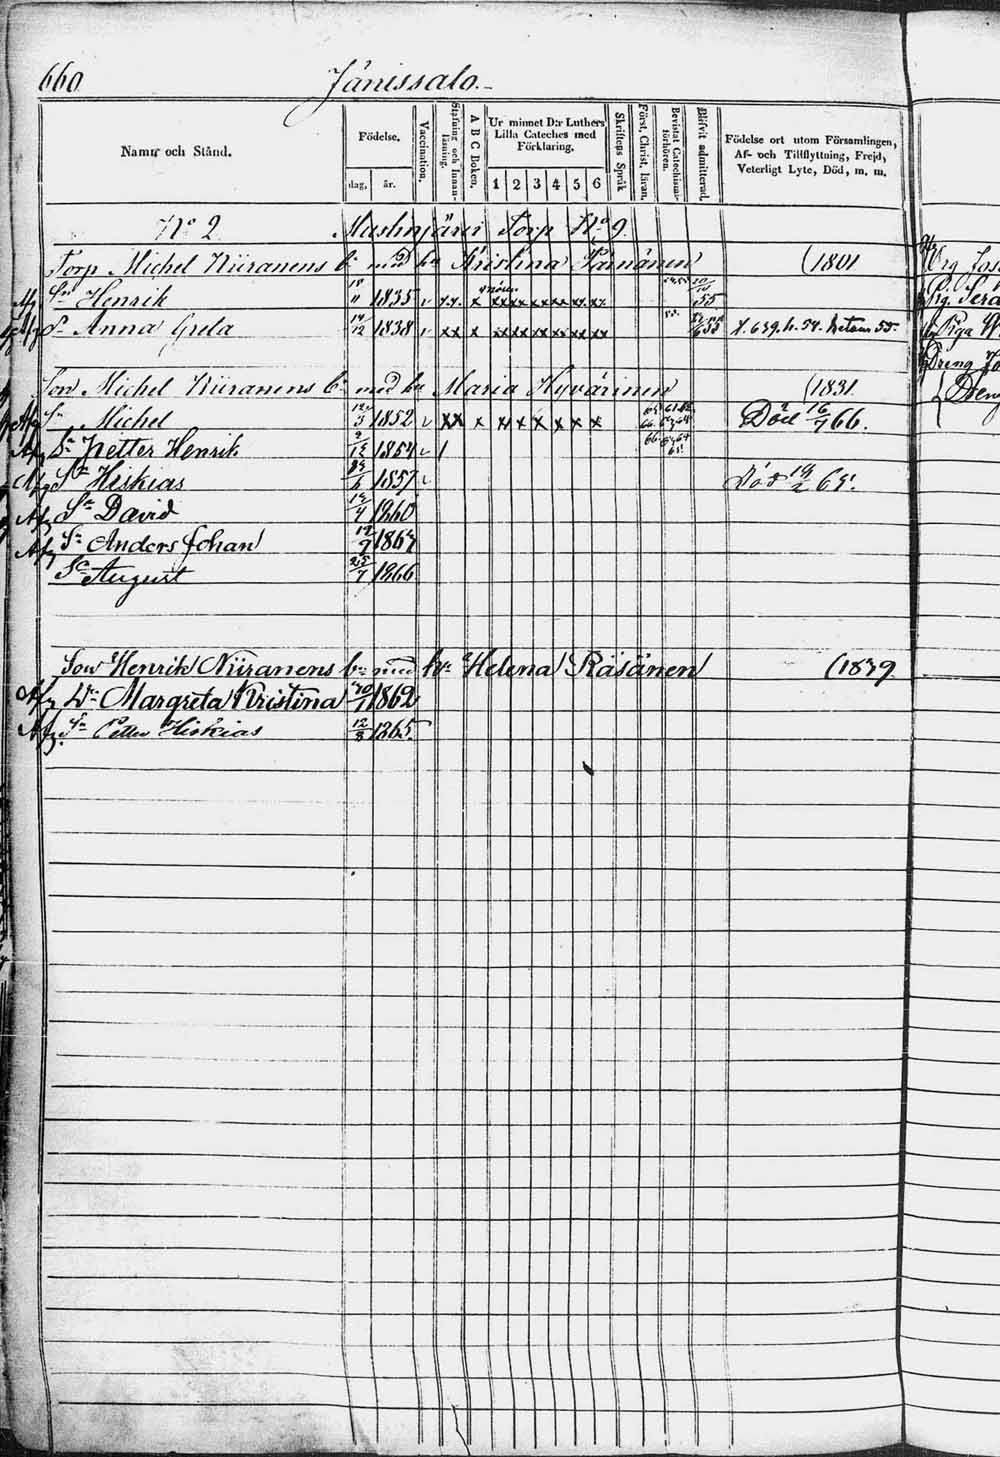 660 Jänissalo.
Namn och Stånd.
Födelse.
dag. år.
Vaccination.
Stafning och Innanläsning.
A B C Boken.
Ur minnet D:r Luthers Lilla Cateches med Förklaring.
1 2 3 4 5 6
Skriftens Språk
Först. Christ. läran.
Bevistat Catechismiförhören.
Blifvit admitterad.
Födelse ort utom Församlingen, Af- och Tillflyttning, Frejd, Veterligt Lyte, Död, m. m.
N:o 2 Torp N:o 9.
Torp Michel Niiranens b:n med hu Kristina (1801
S:n Henrik 18/11 1835 v x x x xx xx xx xx xx xx 55
D:r Anna Greta 14/12 1838 v xx x xx xx xx xx xx xx
Son Michel Niiranens b:n med hu Maria Hyvärinen (1831
Afg S:n Michel 12/3 1852 v xx x x x x x x x Död 16/7 66.
Afg S:n Petter Henrik 1854 v /
Afg S:n Hiskias 1857 v Död 19/2 65.
Afg S:n David 1860
Afg S:n Anders Johan
S:n August 25/7 1866
Son Henrik Niiranens b:n med hu Helena Räsänen (1839
Afg D:r Margreta Kristina 1862
Afg S:n Petter Hiskias 12/8 1865.
Piga
Dreng